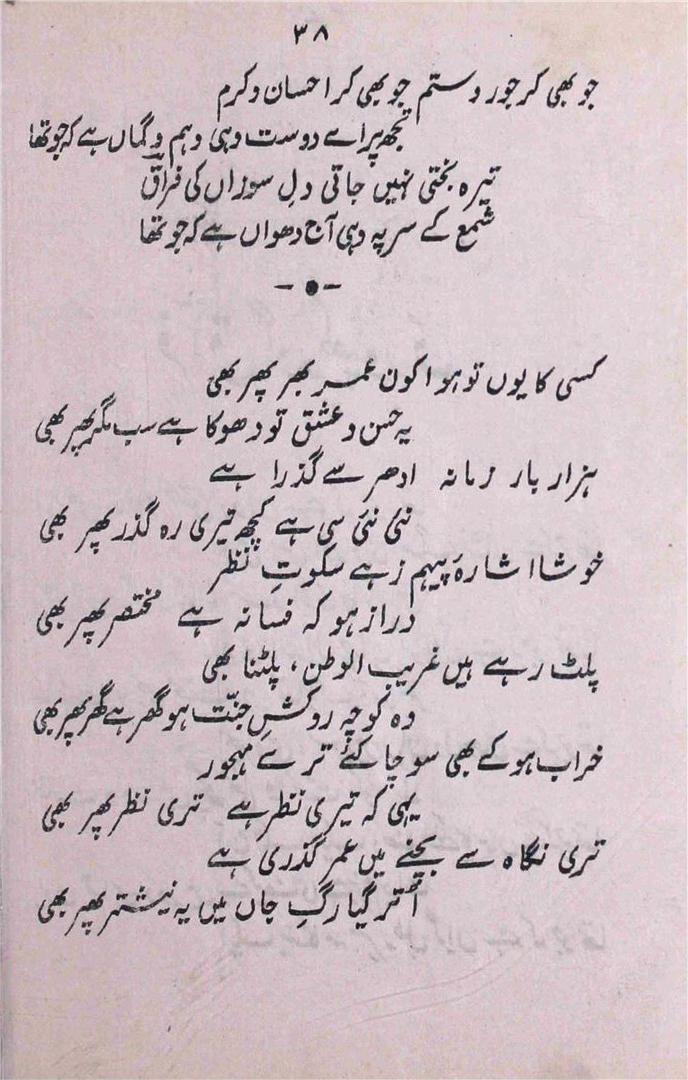 ۳۸
جو بھی کر جور و ستم جو بھی کر احسان و کرم
تجھ پر اے دوست وہی وہم و گماں ہے کہ جو تھا
تیرہ بختی نہیں جاتی دلِ سوزاں کی فراق
شمع کے سر پہ وہی آج دھواں ہے کہ جو تھا
کسی کا یوں تو ہوا کون عمر بھر پھر بھی
یہ حسن و عشق تو دھوکا ہے سب مگر پھر بھی
ہزار بار زمانہ ادھر سے گذرا ہے
نئی نئی سی ہے کچھ تیری رہ گذر پھر بھی
خوشا اشارۂ پیہم زہے سکوتِ نظر
دراز ہو کہ فسانہ ہے مختصر پھر بھی
پلٹ رہے ہیں غریب الوطن، پلٹنا بھی
وہ کوچہ روکشِ جنّت ہو گھر ہے گھر پھر بھی
خراب ہو کے بھی سوچا کئے ترے مہجور
یہی کہ تیری نظر ہے تری نظر پھر بھی
تری نگاہ سے بچنے میں عمر گذری ہے
اُتر گیا رگِ جاں میں یہ نیشتر پھر بھی